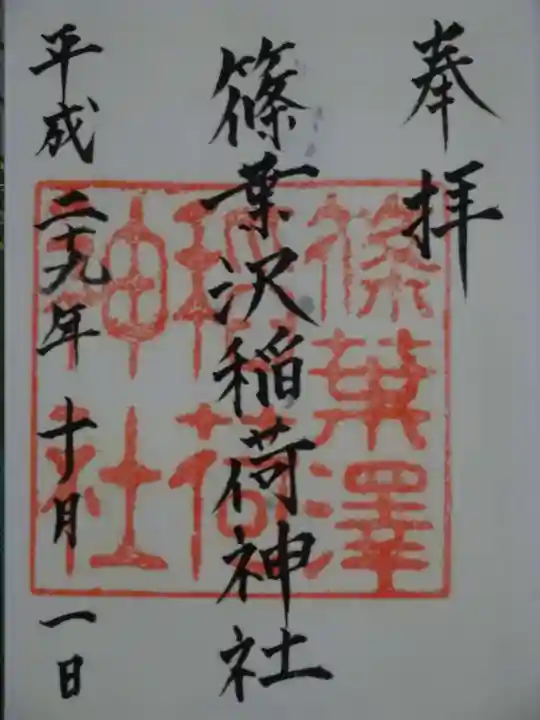 奉拝
篠葉沢稲荷神社
平成二十九年十月一日
篠葉澤
稲荷
神社